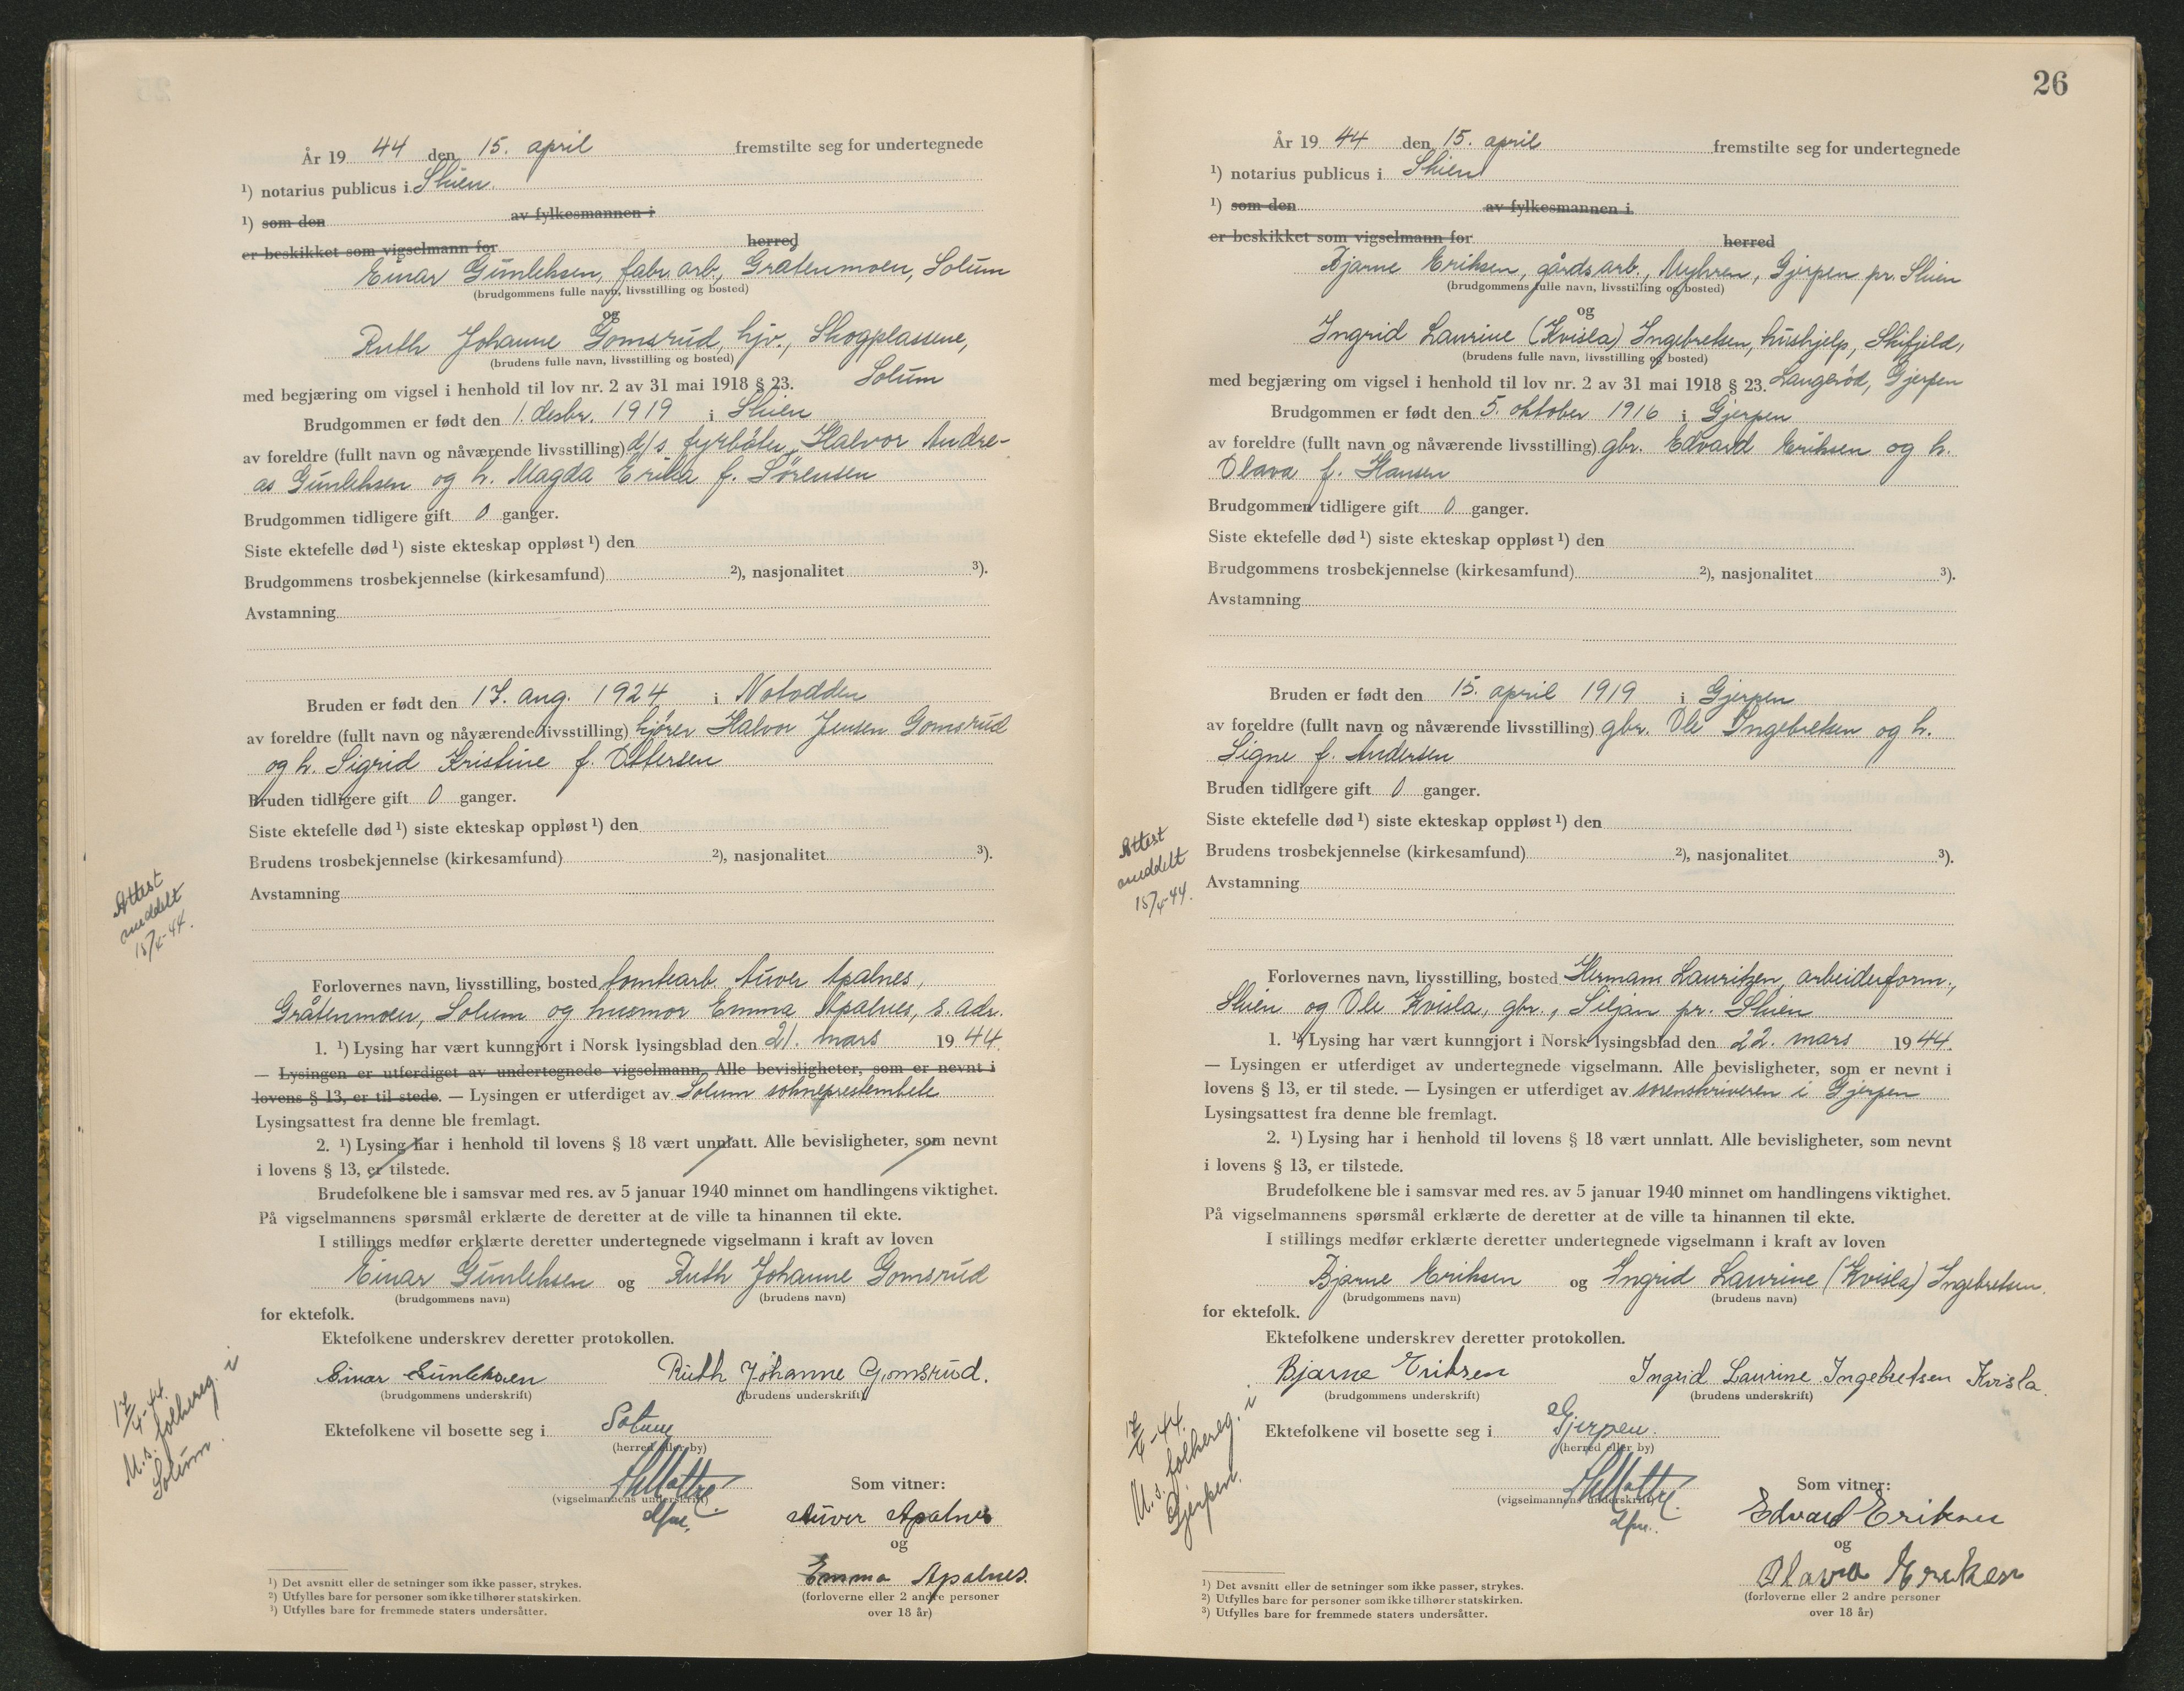 År 19 44 den 15. april fremstilte seg for undertegnede
¹) notarius publicus i Skien.
¹) som den av fylkesmannen i
er beskikket som vigselmann for herred
Einar Gunleksen, fabr. arb., Gråtenmoen, Solum
(brudgommens fulle navn, livsstilling og bosted)
og
Ruth Johanne Gomsrud, hjv., Skogplassene,
(brudens fulle navn, livsstilling og bosted)
med begjæring om vigsel i henhold til lov nr. 2 av 31 mai 1918 § 23. Solum
Brudgommen er født den 1. desbr. 1919 i Skien
av foreldre (fullt navn og nåværende livsstilling) d/s fyrbøter Halvor Andre-
as Gunleksen og h. Magda Erika f. Sørensen
Brudgommen tidligere gift 0 ganger.
Siste ektefelle død ¹) siste ekteskap oppløst ¹) den
Brudgommens trosbekjennelse (kirkesamfund) ²), nasjonalitet ³).
Avstamning
Bruden er født den 17. aug. 1924 i Notodden
av foreldre (fullt navn og nåværende livsstilling) kjører Halvor Jensen Gomsrud
og h. Sigrid Kristine f. Ottersen
Bruden tidligere gift 0 ganger.
Siste ektefelle død ¹) siste ekteskap oppløst ¹) den
Brudens trosbekjennelse (kirkesamfund) ²), nasjonalitet ³).
Avstamning
Attest
meddelt
15/4-44.
Forlovernes navn, livsstilling, bosted tomtearb. Auver Apalnes,
Gråtenmoen, Solum og husmor Emma Apalnes, s. adr.
1. ¹) Lysing har vært kunngjort i Norsk lysingsblad den 21. mars 19 44.
— Lysingen er utferdiget av undertegnede vigselmann. Alle bevisligheter, som er nevnt i
lovens § 13, er til stede. — Lysingen er utferdiget av Solum sokneprestembete
Lysingsattest fra denne ble fremlagt.
2. ¹) Lysing har i henhold til lovens § 18 vært unnlatt. Alle bevisligheter, som nevnt
i lovens § 13, er tilstede.
Brudefolkene ble i samsvar med res. av 5 januar 1940 minnet om handlingens viktighet.
På vigselmannens spørsmål erklærte de deretter at de ville ta hinannen til ekte.
I stillings medfør erklærte deretter undertegnede vigselmann i kraft av loven
Einar Gunleksen og Ruth Johanne Gomsrud
(brudgommens navn) (brudens navn)
for ektefolk.
Ektefolkene underskrev deretter protokollen.
Einar Gunleksen Ruth Johanne Gomsrud.
(brudgommens underskrift) (brudens underskrift)
17/4-44.
M.s. folkereg. i
Solum.
Ektefolkene vil bosette seg i Solum
(herred eller by)
Som vitner:
(vigselmannens underskrift)
Auver Apalnes
og
Emma Apalnes.
(forloverne eller 2 andre personer
over 18 år)
¹) Det avsnitt eller de setninger som ikke passer, strykes.
²) Utfylles bare for personer som ikke tilhører statskirken.
³) Utfylles bare for fremmede staters undersåtter.
26
År 19 44 den 15. april fremstilte seg for undertegnede
¹) notarius publicus i Skien
¹) som den av fylkesmannen i
er beskikket som vigselmann for herred
Bjarne Eriksen, gårdsarb., Myhren, Gjerpen pr. Skien
(brudgommens fulle navn, livsstilling og bosted)
og
Ingrid Laurine (Kvisla) Ingebretsen, hushjelp, Skifjeld,
(brudens fulle navn, livsstilling og bosted)
med begjæring om vigsel i henhold til lov nr. 2 av 31 mai 1918 § 23. Langerød, Gjerpen
Brudgommen er født den 5. oktober 1916 i Gjerpen
av foreldre (fullt navn og nåværende livsstilling) gbr. Edvard Eriksen og h.
Olava f. Hansen
Brudgommen tidligere gift 0 ganger.
Siste ektefelle død ¹) siste ekteskap oppløst ¹) den
Brudgommens trosbekjennelse (kirkesamfund) ²), nasjonalitet ³).
Avstamning
Bruden er født den 15. april 1919 i Gjerpen
av foreldre (fullt navn og nåværende livsstilling) gbr. Ole Ingebretsen og h.
Signe f. Andersen
Bruden tidligere gift 0 ganger.
Siste ektefelle død ¹) siste ekteskap oppløst ¹) den
Brudens trosbekjennelse (kirkesamfund) ²), nasjonalitet ³).
Avstamning
Attest
meddelt
15/4-44.
Forlovernes navn, livsstilling, bosted Hermann Lauritzen, arbeiderform.,
Skien og Ole Kvisla, gbr., Siljan pr. Skien
1. ¹) Lysing har vært kunngjort i Norsk lysingsblad den 22. mars 19 44.
— Lysingen er utferdiget av undertegnede vigselmann. Alle bevisligheter, som er nevnt i
lovens § 13, er til stede. — Lysingen er utferdiget av sorenskriveren i Gjerpen
Lysingsattest fra denne ble fremlagt.
2. ¹) Lysing har i henhold til lovens § 18 vært unnlatt. Alle bevisligheter, som nevnt
i lovens § 13, er tilstede.
Brudefolkene ble i samsvar med res. av 5 januar 1940 minnet om handlingens viktighet.
På vigselmannens spørsmål erklærte de deretter at de ville ta hinannen til ekte.
I stillings medfør erklærte deretter undertegnede vigselmann i kraft av loven
Bjarne Eriksen og Ingrid Laurine (Kvisla) Ingebretsen.
(brudgommens navn) (brudens navn)
for ektefolk.
Ektefolkene underskrev deretter protokollen.
Bjarne Eriksen Ingrid Laurine Ingebretsen Kvisla.
(brudgommens underskrift) (brudens underskrift)
17/4-44.
M.s. folkereg. i
Gjerpen.
Ektefolkene vil bosette seg i Gjerpen.
(herred eller by)
Som vitner:
(vigselmannens underskrift)
Edvard Eriksen
og
Olava Eriksen
(forloverne eller 2 andre personer
over 18 år)
¹) Det avsnitt eller de setninger som ikke passer, strykes.
²) Utfylles bare for personer som ikke tilhører statskirken.
³) Utfylles bare for fremmede staters undersåtter.